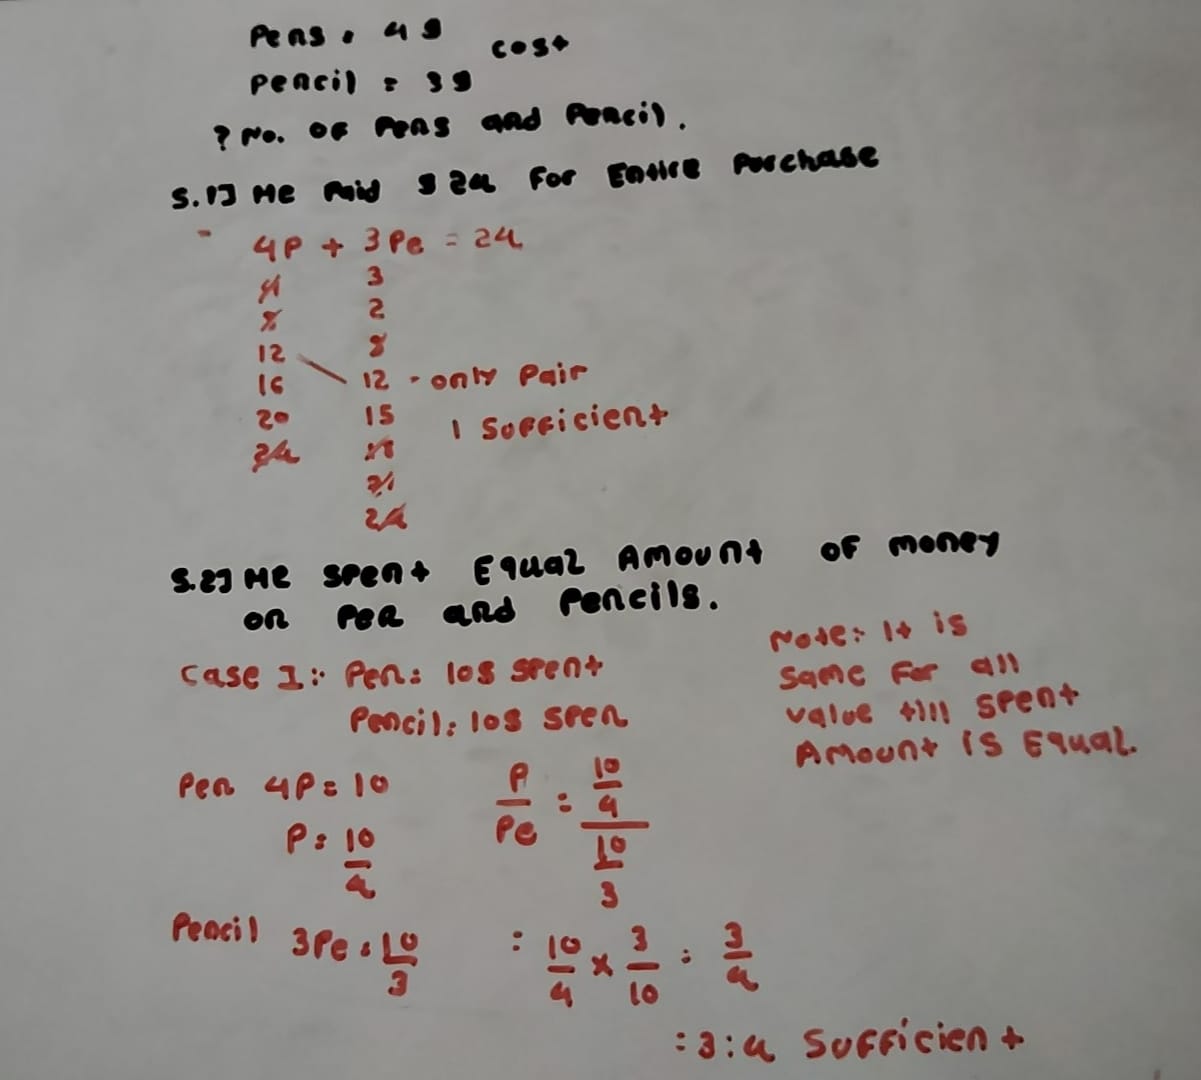 Pens : 4$ cost
Pencil : 3$
? No. of Pens and Pencil.
S.1] He Paid $ 24 For Entire Purchase
- 4P + 3Pe = 24
4 3
8 2
12 8
16 12 - only Pair
20 15 1 Sufficient
24 18
21
24
S.2] He spent Equal Amount of money
on Pen and Pencils.
Case 1:- Pen: 10$ spent
Pencil: 10$ spen
Note:- It is
same for all
value till spent
Amount is Equal.
Pen 4P = 10
P = 10/4
P/Pe = 10/4 / 10/3
Pencil 3Pe = 10/3
= 10/4 x 3/10 = 3/4
= 3:4 Sufficient